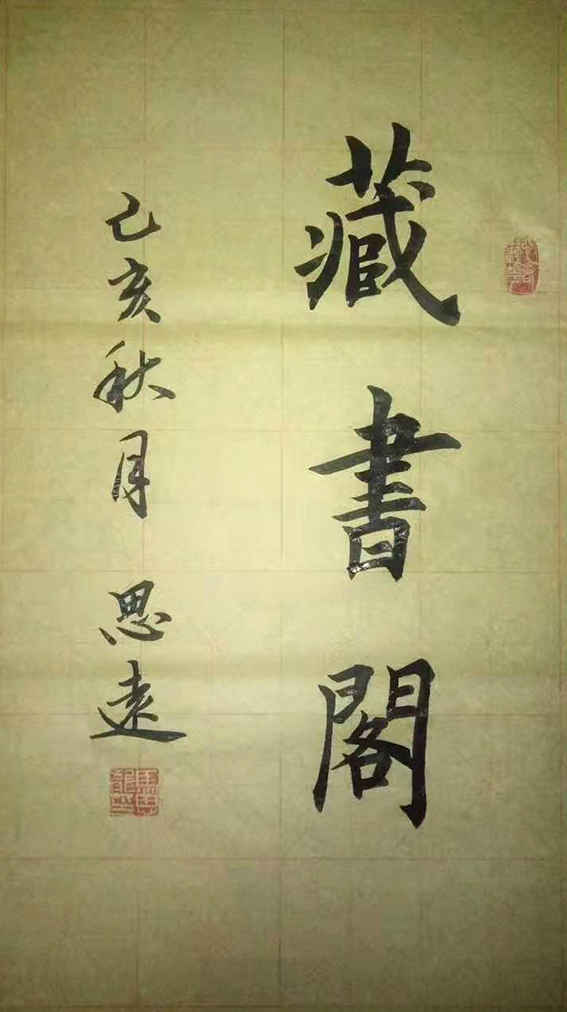 藏書閣
己亥秋月 思遠